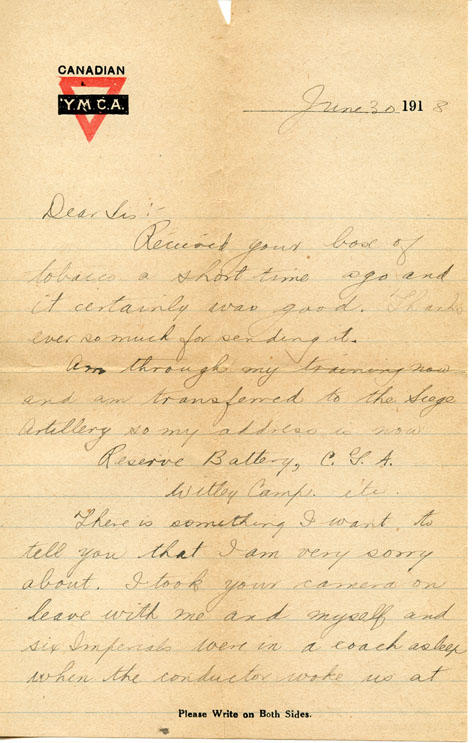 CANADIAN
Y.M.C.A.
June 30 1918
Dear Sis:-
Received your box of
tobacco a short time ago and
it certainly was good. Thanks
ever so much for sending it.
Am through my training now
and am transferred to the Siege
Artillery so my address is now
Reserve Battery, C. G. A.
Witley Camp. etc.
There is something I want to
tell you that I am very sorry
about. I took your camera on
leave with me and myself and
six Imperials were in a coach asleep
when the conductor woke us at
Please Write on Both Sides.